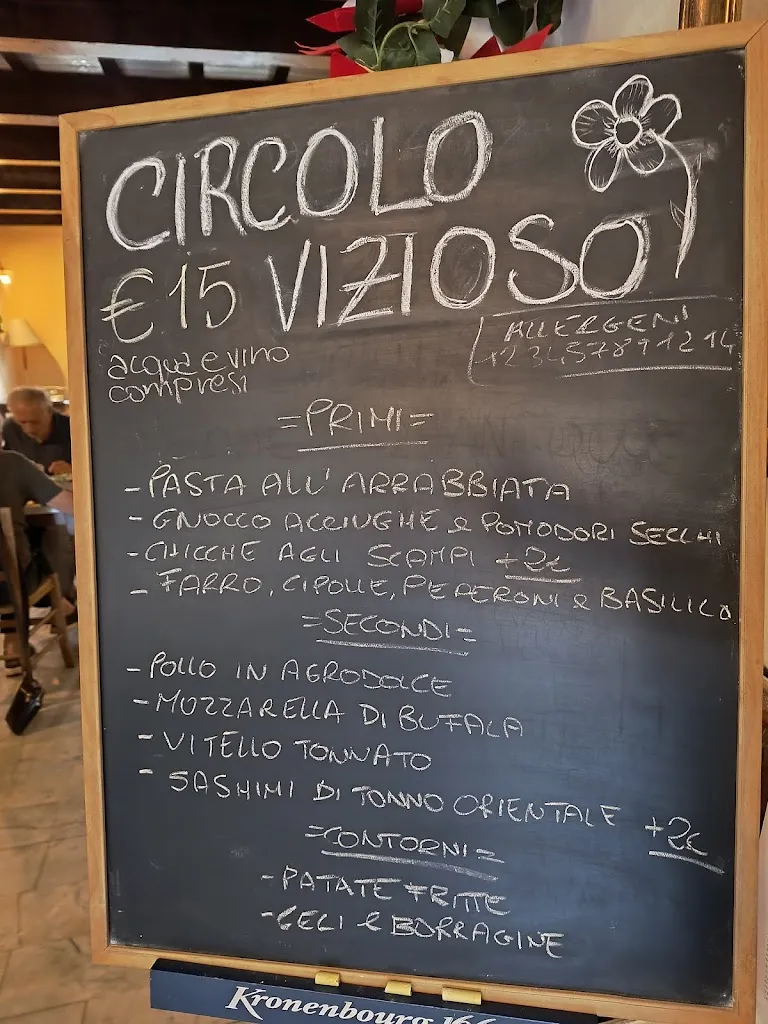 CIRCOLO
VIZIOSO
€15
acqua e vino
compresi
ALLERGENI
=PRIMI=
- PASTA ALL'ARRABBIATA
- GNOCCO ACCIUGHE e POMODORI SECCHI
- CHICCHE AGLI SCAMPI +2€
- FARRO, CIPOLLE, PEPERONI e BASILICO
=SECONDI=
- POLLO IN AGRODOLCE
- MOZZARELLA DI BUFALA
- VITELLO TONNATO
- SASHIMI DI TONNO ORIENTALE +2€
=CONTORNI=
- PATATE FRITTE
- CECI e BORRAGINE
Kronenbourg